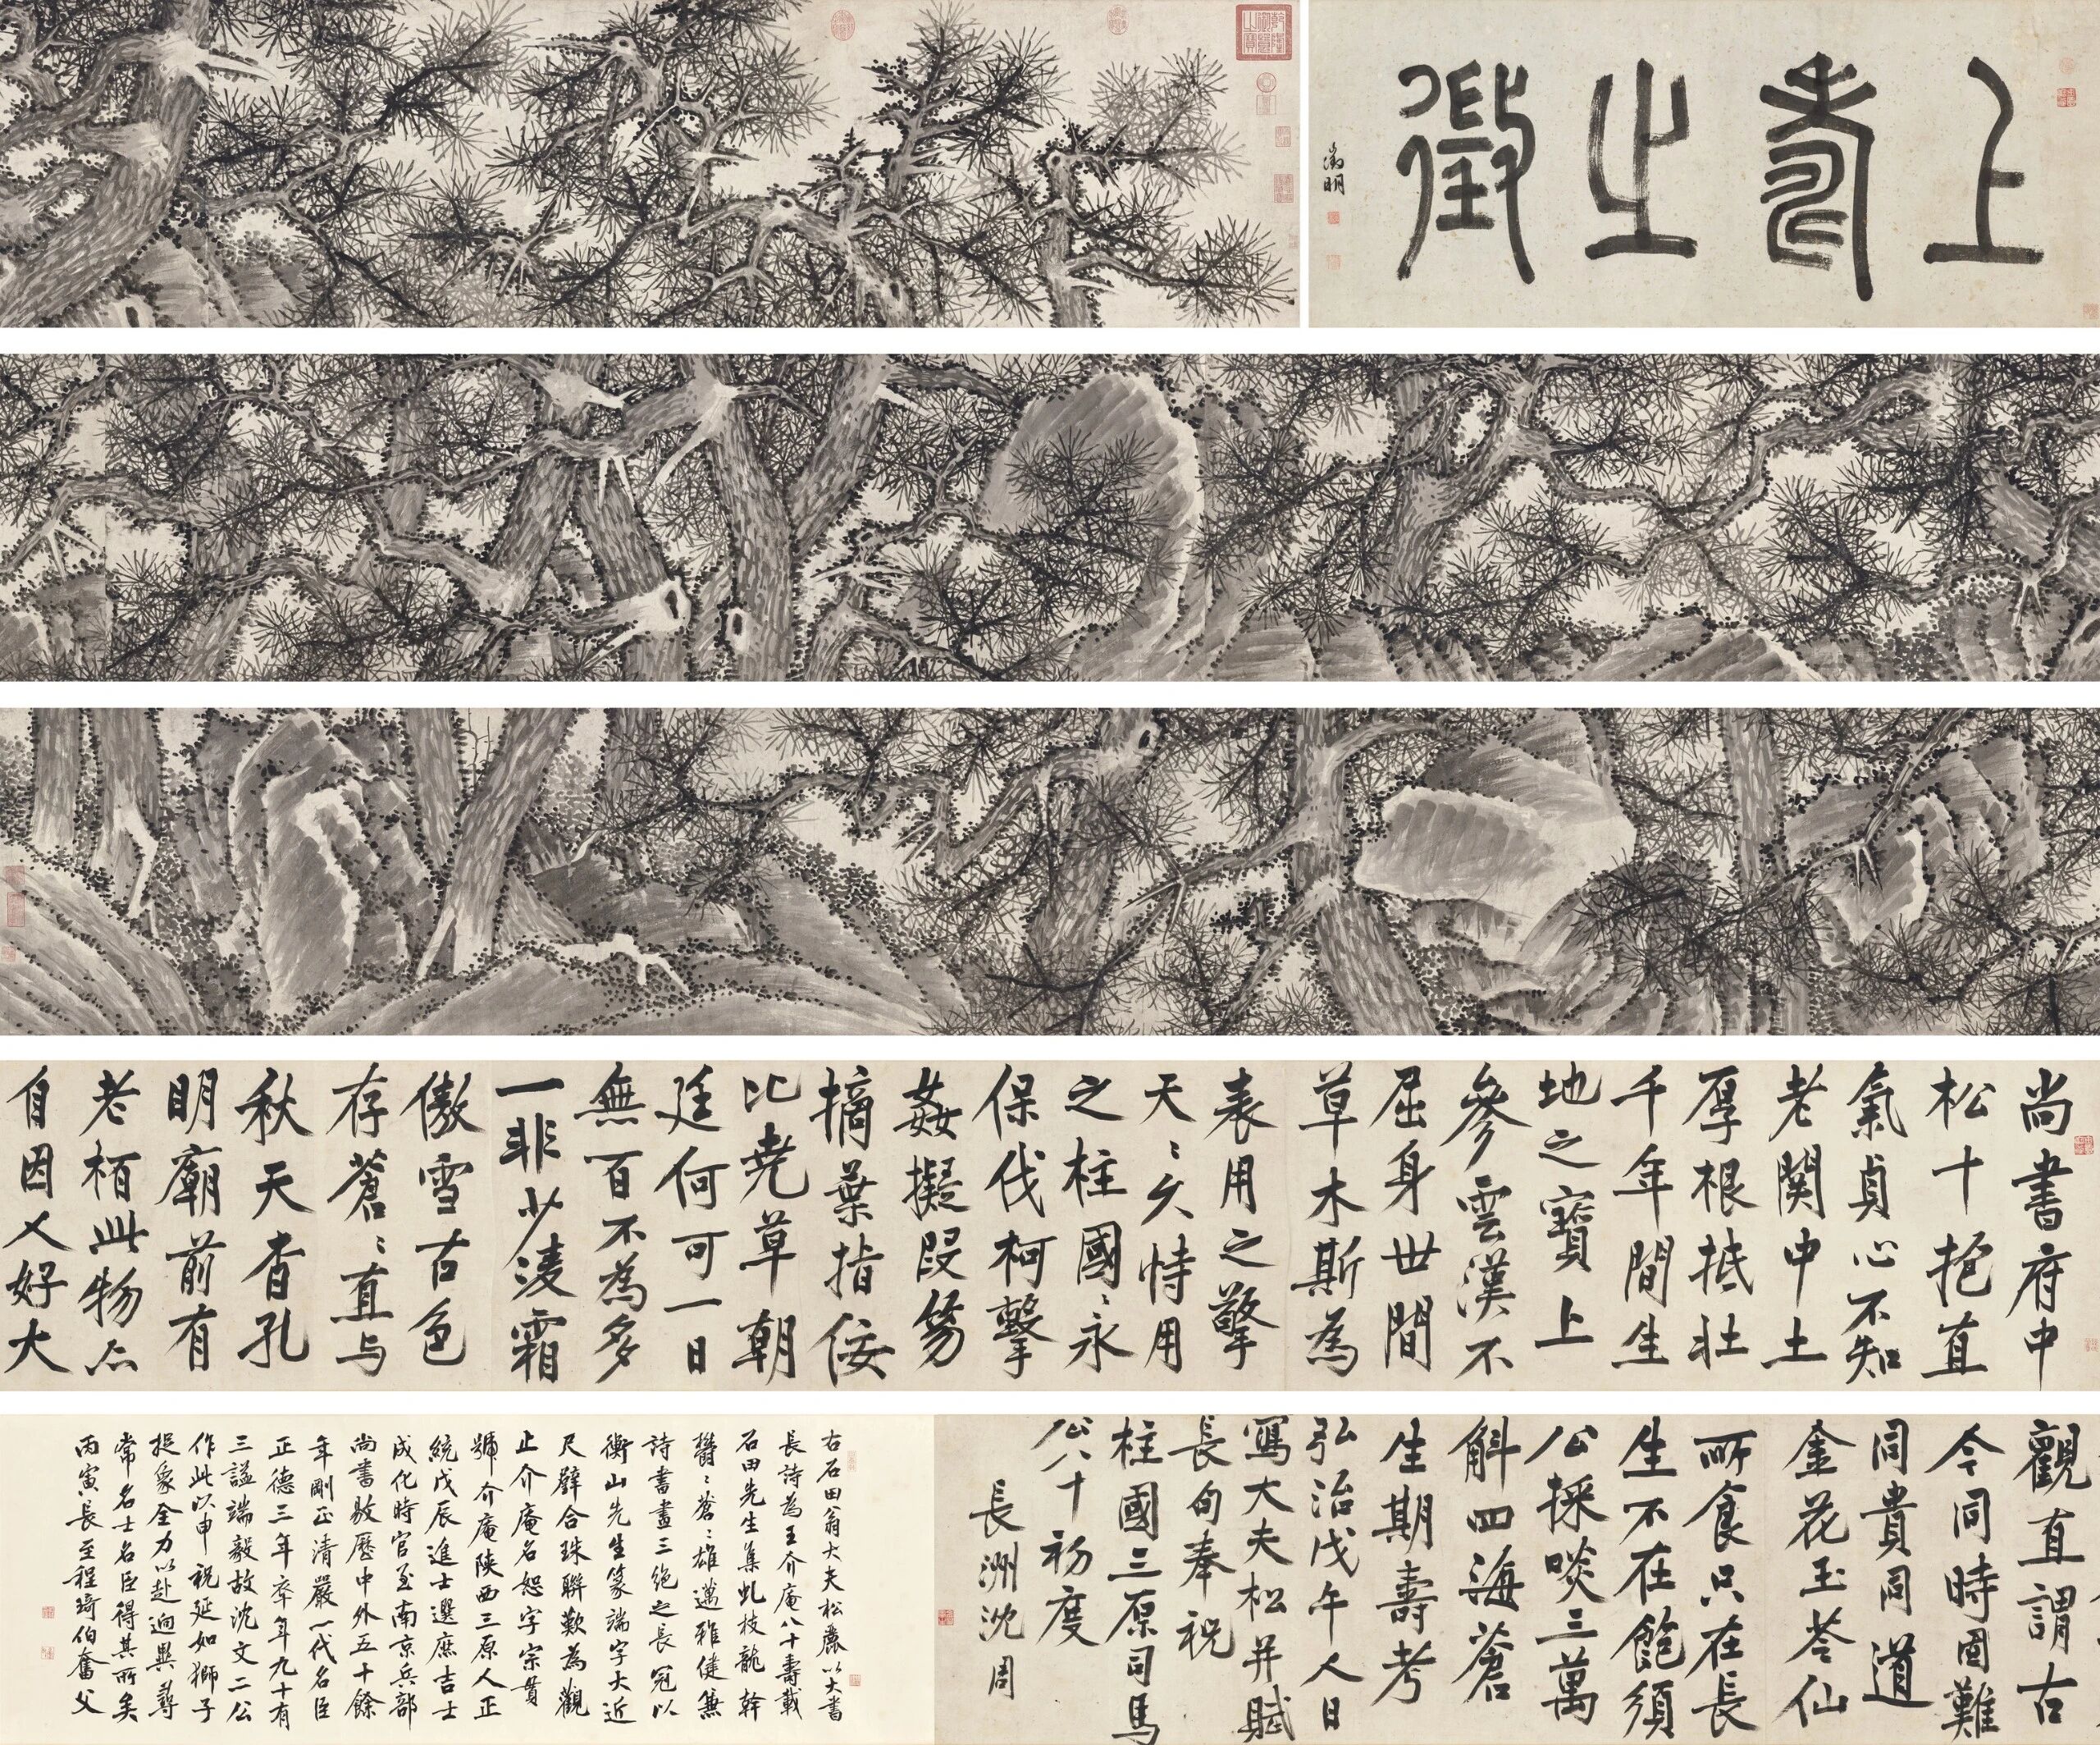 上壽之徵
徵明
乾隆御覽之寶
尚書府中
松十抱直
氣貞心不知
老関中土
厚根抵壯
千年間生
地之寶上
參雲漢不
屈身世間
草木斯為
表用之擎
天〻久恃用
之柱國〻永
保伐柯擊
姦擬段笏
摘葉指佞
比堯草朝
廷何可一日
無百不為多
一非少凌霜
傲雪古色
存蒼〻直与
秋天杳孔
明廟前有
老栢此物亦
自因人好大
觀直謂古
今同時固難
同貴同道
金花玉苓仙
所食只在長
生不在飽須
公採啖三萬
斛四海蒼
生期壽考
弘治戊午人日
寫大夫松并賦
長句奉祝
柱國三原司馬
公八十初度
長洲沈周
右石田翁大夫松麓以大書
長詩為王介庵八十壽載
石田先生集虬枝龍幹
鬱〻蒼〻雄邁雅健兼
詩書畫三絕之長冠以
衡山先生篆端字大近
尺璧合珠聯歎為觀
止介庵名恕字宗貫
號介庵陝西三原人正
統戊辰進士選庶吉士
成化時官至南京兵部
尚書敭歷中外五十餘
年剛正清嚴一代名臣
正德三年卒年九十有
三謚端毅故沈文二公
作此以申祝延如獅子
捉象全力以赴迥異尋
常名士名臣得其所矣
丙寅長至程琦伯奮父